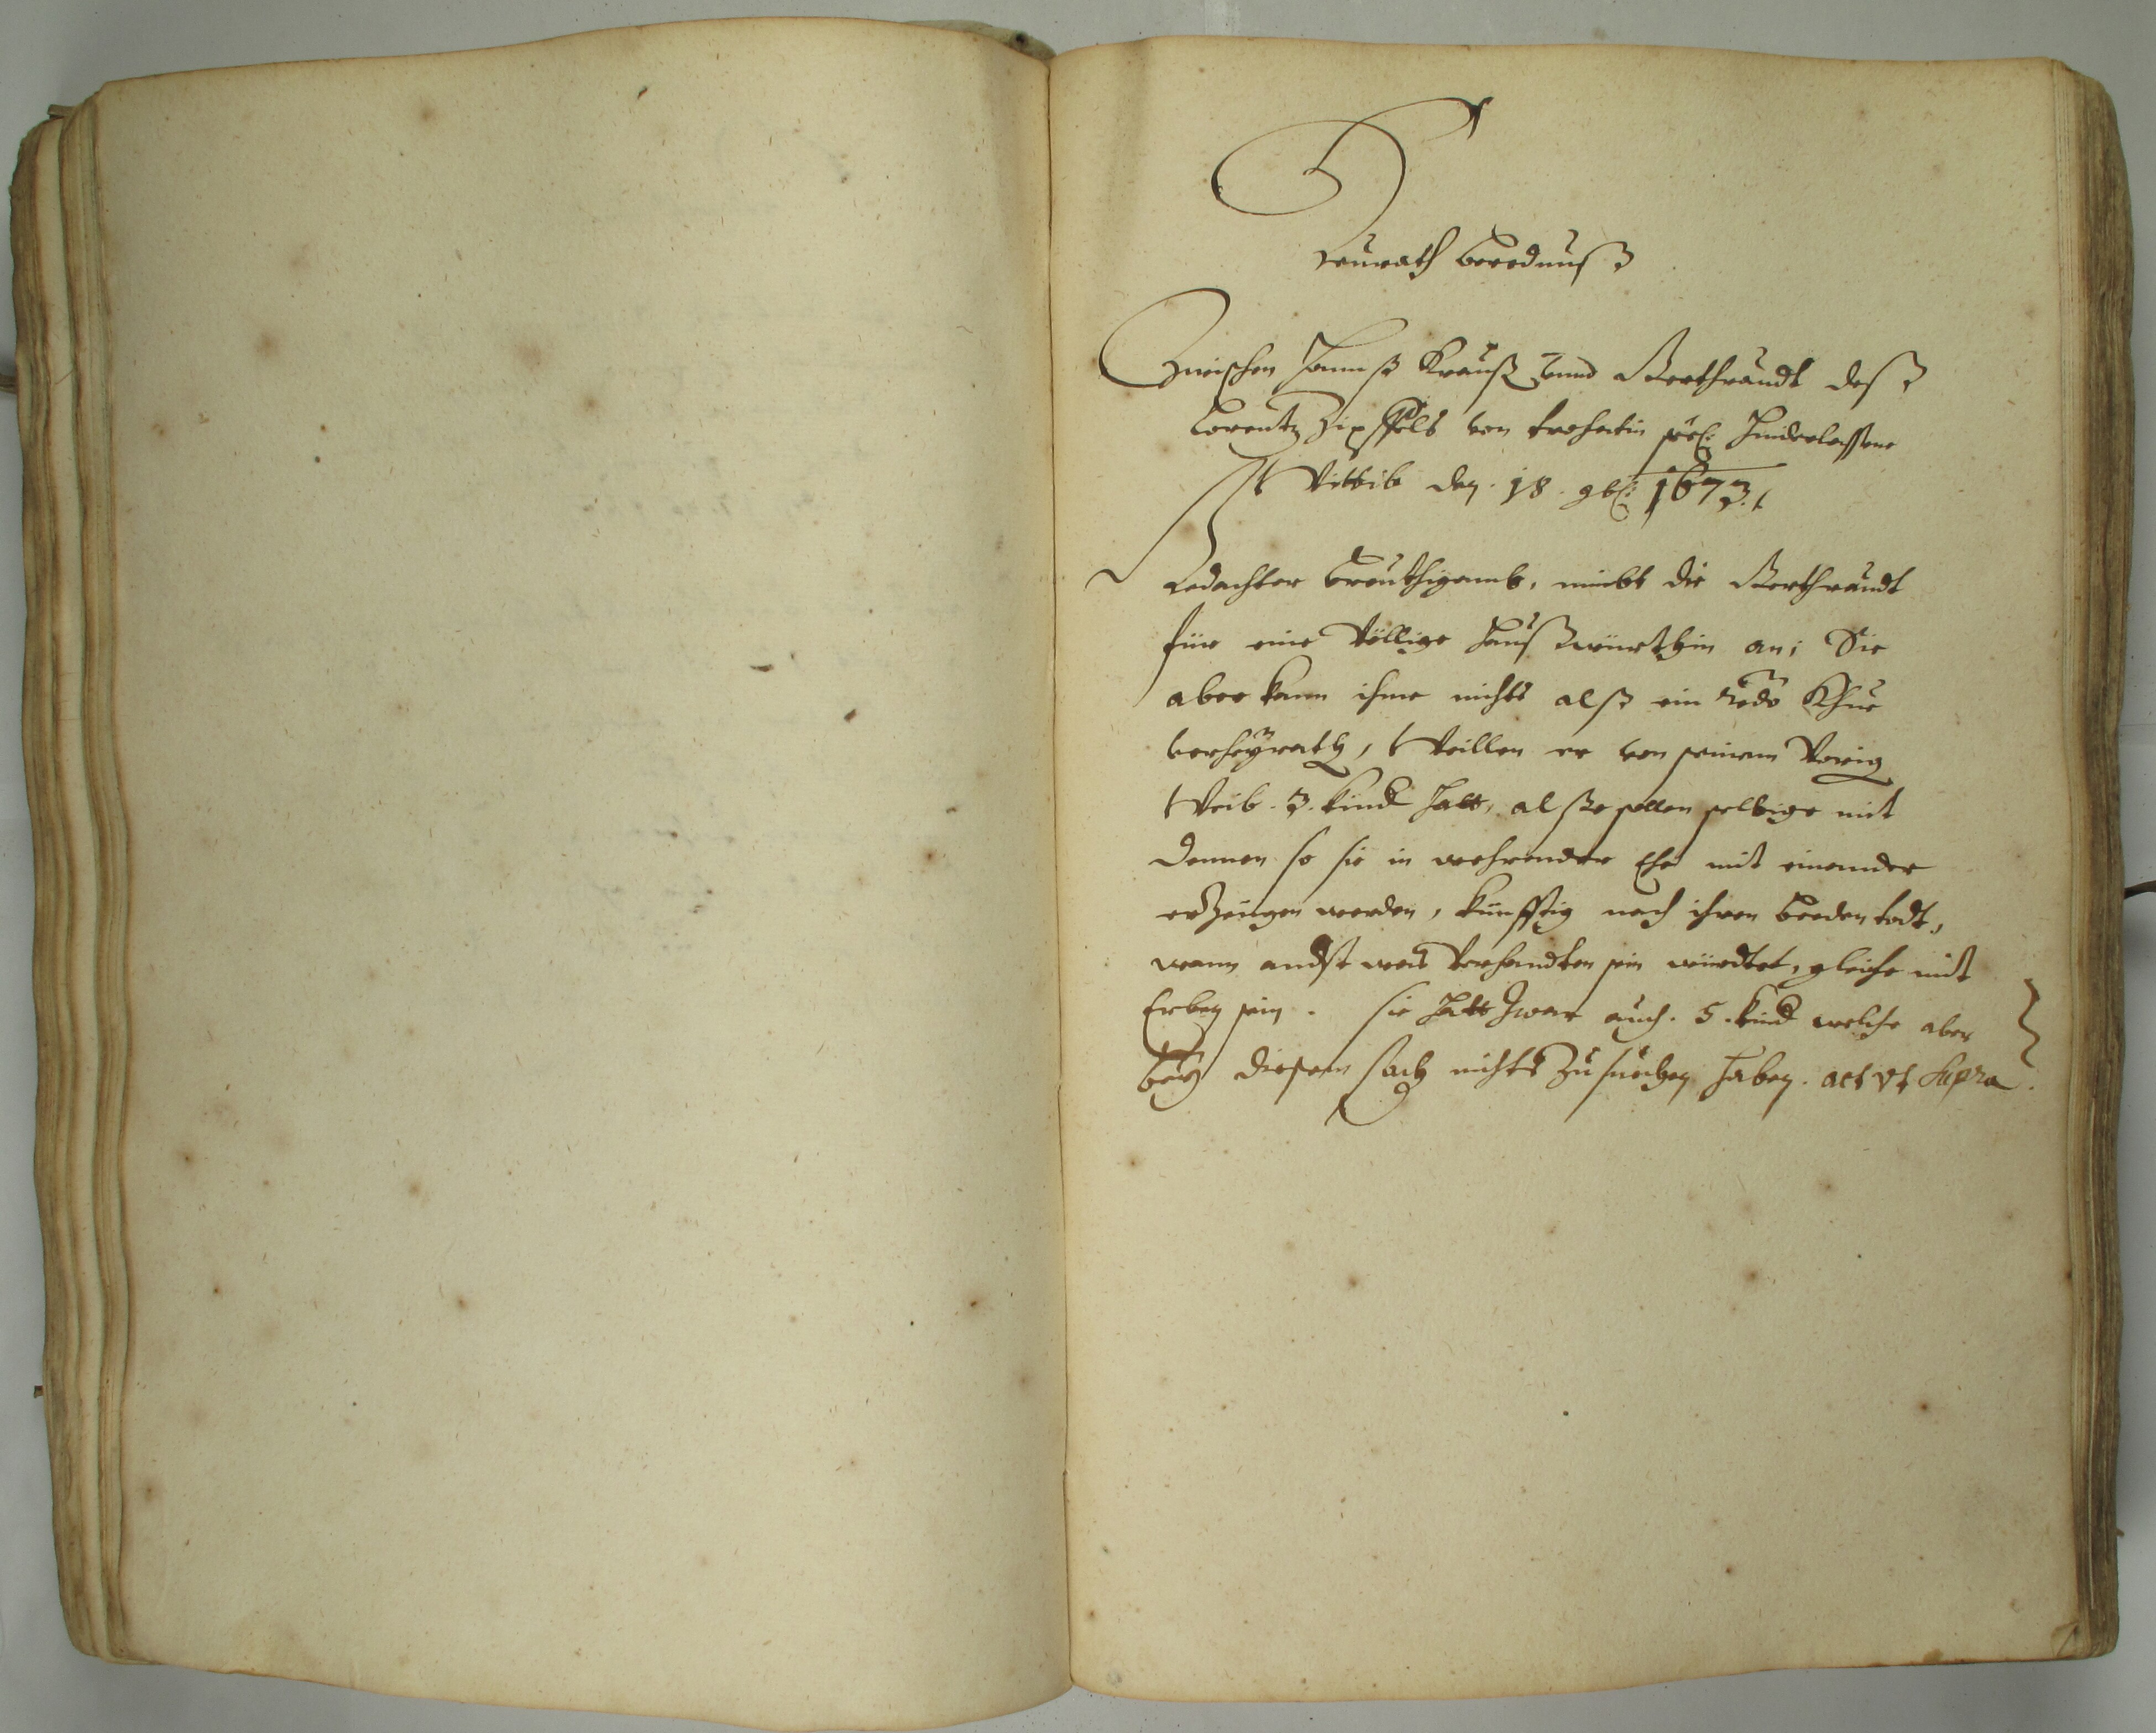 Heurath berednuß
Zwischen Hannß Krauß Vnnd Gerthraudt deß
Lorentz Zipffels von seel: Hinderlassene
Wittib den. 18. 9b: 1673.
Gedachter breuthigamb, nimbt die Gerthraudt
für eine Völlige Haußwürthin an; Sie
aber kann ihme nichts alß ein redo Khue
verheyrath, Weillen er von seinem Vorig
Weib. 3. kind hatt, alße sollen selbige mit
dennen so sie in wehrender Ehe mit einander
erzeugen werden, künfftig nach ihren beeden todt,
wann andst was Verhandten sein würdtet, gleiche mit
Erben sein. sie hatt zwar auch. 5. kind welche aber
bey diesem sach nichts zu suechen haben. act vt supra.